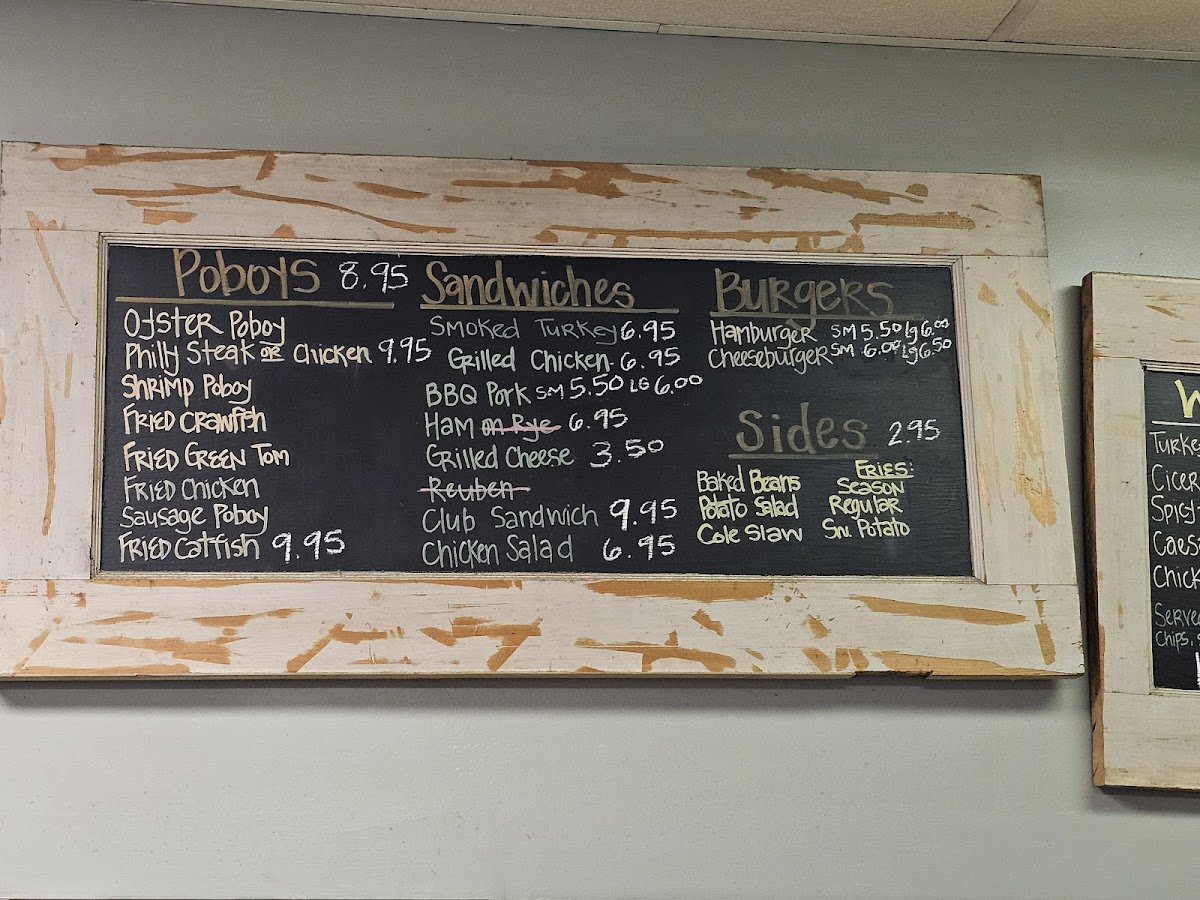 Poboys 8.95
Oyster Poboy
Philly Steak or Chicken 9.95
Shrimp Poboy
Fried Crawfish
Fried Green Tom
Fried Chicken
Sausage Poboy
Fried Catfish 9.95
Sandwiches
Smoked Turkey 6.95
Grilled Chicken 6.95
BBQ Pork SM 5.50 LG 6.00
Ham on Rye 6.95
Grilled Cheese 3.50
Reuben
Club Sandwich 9.95
Chicken Salad 6.95
Burgers
Hamburger SM 5.50 Lg 6.00
Cheeseburger SM 6.00 Lg 6.50
Sides 2.95
Baked Beans
Potato Salad
Cole Slaw
Fries:
Season
Regular
Sw. Potato
W
Turkey
Caesa
Chick
Served
Chips,